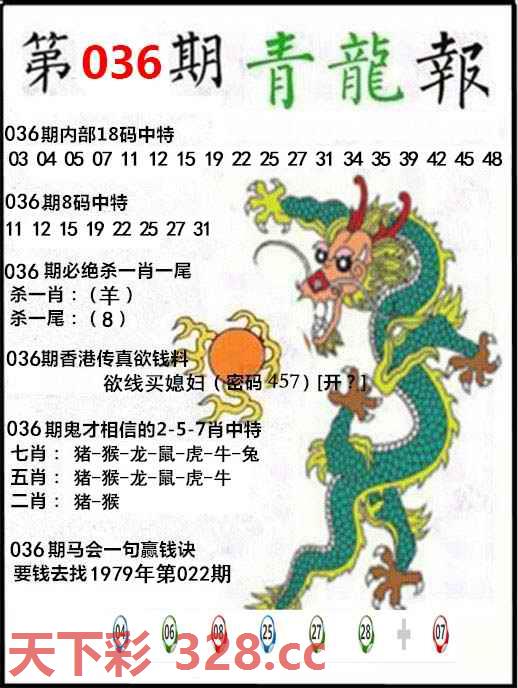 第036期青龍報
036期内部18码中特
03 04 05 07 11 12 15 19 22 25 27 31 34 35 39 42 45 48
036期8码中特
11 12 15 19 22 25 27 31
036期必绝杀一肖一尾
杀一肖:(羊)
杀一尾:(8)
036期香港传真欲钱料
欲线买媳妇(密码457)[开?]
036期鬼才相信的2-5-7肖中特
七肖: 猪-猴-龙-鼠-虎-牛-兔
五肖: 猪-猴-龙-鼠-虎-牛
二肖: 猪-猴
036期马会一句赢钱诀
要钱去找1979年第022期
04 06 08 25 27 28 + 07
天下彩 328.cc